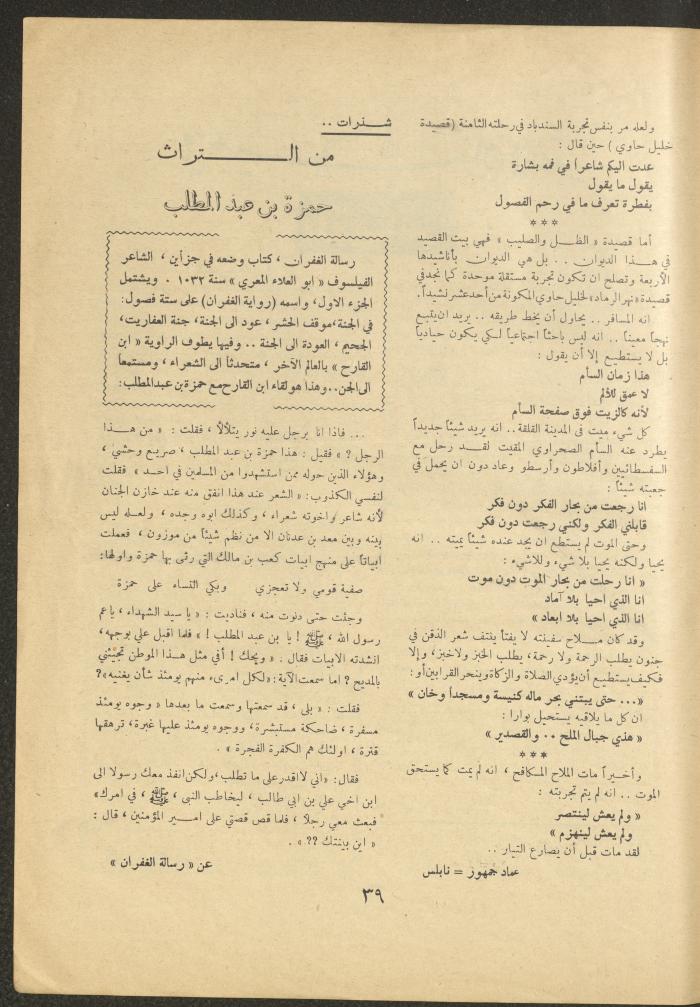 ولعله مر بنفس تجربة السندباد في رحلته الثامنة (قصيدة
خليل حاوي) حين قال :
عدت اليكم شاعراً في فمه بشارة
يقول ما يقول
بفطرة تعرف ما في رحم الفصول
***
أما قصيدة « الظل والصليب » فهي بيت القصيد
في هذا الديوان .. بل هي الديوان بأناشيدها
الأربعة وتصلح ان تكون تجربة مستقلة موحدة كما نجد في
قصيدة «نهر الرماد» لخليل حاوي المكونة من أحد عشر نشيداً.
انه المسافر .. يحاول أن يخط طريقه .. يريد ان يتبع
نهجاً معيناً .. انه ليس باحثاً اجتماعياً لكي يكون حيادياً
بل لا يستطيع إلا أن يقول :
هذا زمان السأم
لا عمق للألم
لأنه كالزيت فوق صفحة السأم
كل شيء ميت في المدينة القلقة.. انه يريد شيئاً جديداً
يطرد عنه السأم الصحراوي المقيت لقد رحل مع
السفسطائيين وأفلاطون وأرسطو وعاد دون ان يحمل في
جعبته شيئاً :
انا رجعت من بحار الفكر دون فكر
قابلني الفكر ولكني رجعت دون فكر
وحتى الموت لم يستطع ان يجد عنده شيئاً يميته .. انه
يحيا ولكنه يحيا بلا شيء وللاشيء :
« انا رحلت من بحار الموت دون موت
انا الذي احيا بلا آماد
انا الذي احيا بلا ابعاد »
وقد كان ملاح سفينته لا يفتأ ينتف شعر الذقن في
جنون يطلب الرحمة ولا رحمة، يطلب الخبز ولا خبز، وإلا
فكيف يستطيع أن يؤدي الصلاة والزكاة وينحر القرابين أو :
«... حتى يبتني بحر ماله كنيسة ومسجداً وخان »
ان كل ما يلاقيه يستحيل بوارا :
« هذي جبال الملح .. والقصدير »
***
وأخيراً مات الملاح المكافح ، انه لم يمت كما يستحق
الموت .. انه لم يتم تجربته :
« ولم يعش لينتصر
ولم يعش لينهزم »
لقد مات قبل أن يصارع التيار ..
عماد جمهور = نابلس
شذرات ..
من التراث
حمزة بن عبد المطلب
رسالة الغفران ، كتاب وضعه في جزأين ، الشاعر
الفيلسوف « ابو العلاء المعري » سنة ١٠٣٢ . ويشتمل
الجزء الاول، واسمه (رواية الغفران) على ستة فصول:
في الجنة، موقف الحشر، عود الى الجنة، جنة العفاريت،
الجحيم ، العودة الى الجنة .. وفيها يطوف الراوية « ابن
القارح » بالعالم الآخر ، متحدثاً الى الشعراء ، ومستمعاً
الى الجن.. وهذا هو لقاء ابن القارح مع حمزة بن عبد المطلب:
... فاذا انا برجل عليه نور يتلألأ ، فقلت : « من هذا
الرجل ؟ » فقيل : هذا حمزة بن عبد المطلب ، صريع وحشي ،
وهؤلاء الذين حوله ممن استشهدوا من المسلمين في احد » فقلت
لنفسي الكذوب: « الشعر عند هذا انفق منه عند خازن الجنان
لأنه شاعر واخوته شعراء ، وكذلك ابوه وجده ، ولعله ليس
بينه وبين معد بن عدنان الا من نظم شيئاً من موزون ، فعملت
أبياتاً على منهج ابيات كعب بن مالك التي رثى بها حمزة واولها:
صفية قومي ولا تعجزي وبكي النساء على حمزة
وجئت حتى دنوت منه ، فناديت : « يا سيد الشهداء ، ياعم
رسول الله ، ﷺ ! يا بن عبد المطلب ! » فلما اقبل علي بوجهه،
انشدته الابيات فقال : « ويحك ! أفي مثل هذا الموطن تجيئني
بالمديح ? اما سمعت الآية: «لكل امرىء منهم يومئذ شأن يغنيه»?
فقلت : « بلى ، قد سمعتها وسمعت ما بعدها « وجوه يومئذ
مسفرة ، ضاحكة مستبشرة، ووجوه يومئذ عليها غبرة، ترهقها
قترة ، اولئك هم الكفرة الفجرة » .
فقال: «اني لا اقدر على ما تطلب، ولكن انفذ معك رسولا الى
ابن اخي علي بن ابي طالب ، ليخاطب النبي ، ﷺ ، في امرك»
فبعث معي رجلا ، فلما قص قصتي على امير المؤمنين ، قال :
« اين بينتك ?? » .
عن « رسالة الغفران »
٣٩